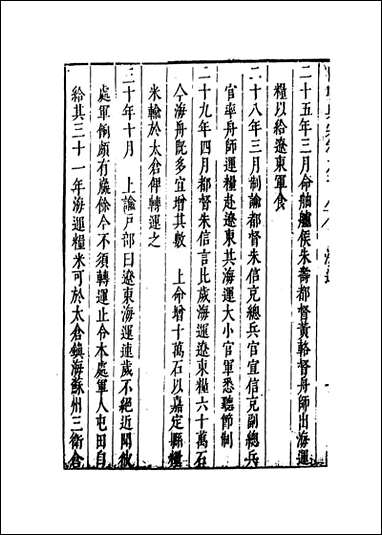 二十五年三月命舳艫侯朱壽都督黃輅督舟師出海運
糧以給遼東軍食
二十八年三月制諭都督朱信克總兵官宣信克副總兵
官率舟師運糧赴遼東其海運大小官軍悉聽節制
二十九年四月都督朱信言比歲海運遼東糧六十萬石
今海舟既多宜增其數　上命增十萬石以嘉定縣糧
米輸於太倉俾轉運之
三十年十月　上諭戶部曰遼東海運連歲不絕近聞彼
處軍餉頗有贏餘今不須轉運止令本處軍人屯田自
給其三十一年海運糧米可於太倉鎮海蘇州三衛倉